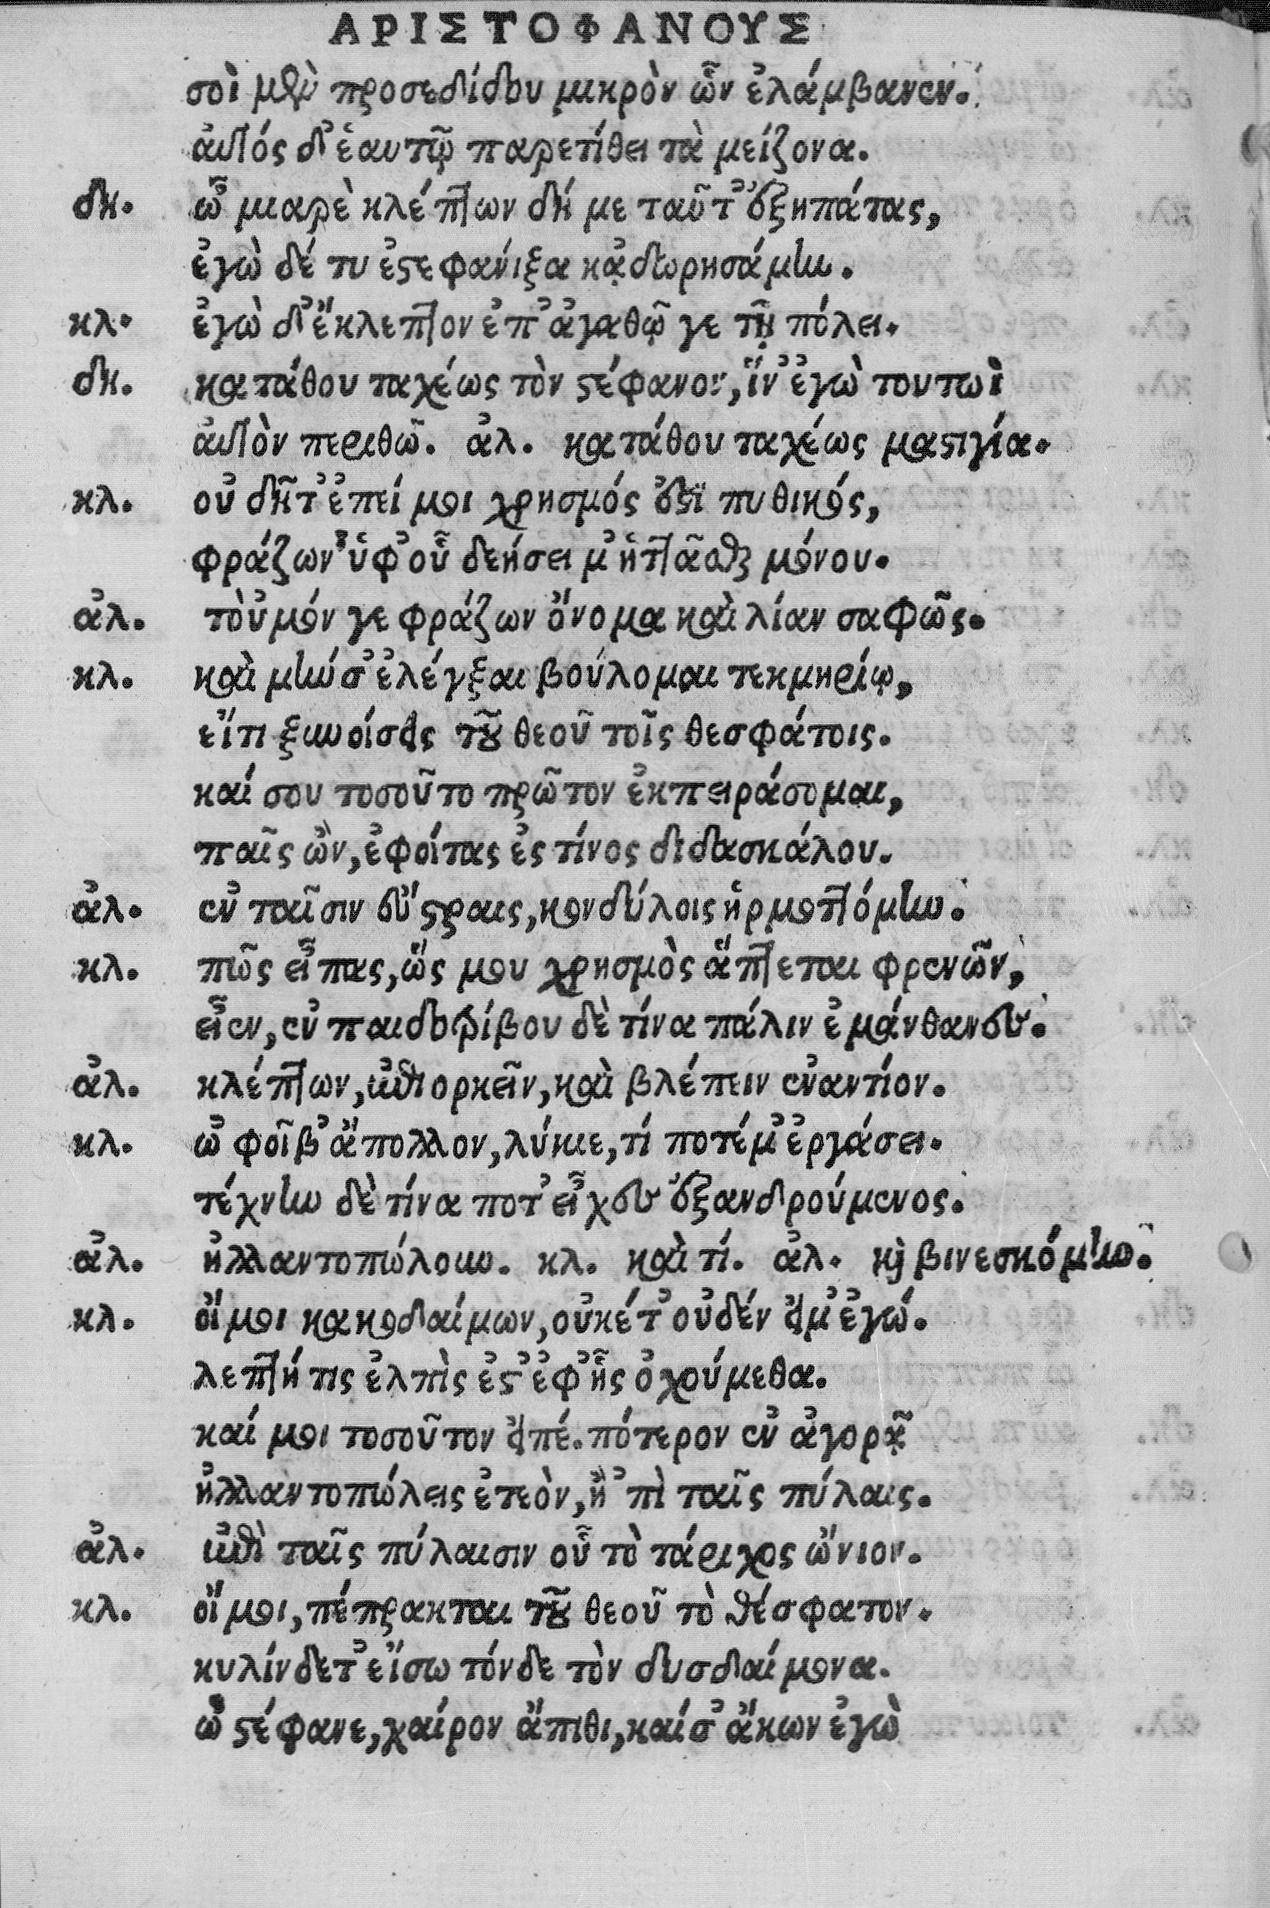 ΑΡΙΣΤΟΦΑΝΟΥΣ
σοὶ μὲν προσεδίδου μικρὸν ὧν ἐλάμβανεν.
αὐτός δ' ἑαυτῷ παρετίθει τὰ μείζονα.
δη. ὦ μιαρὲ κλέπτων δή με ταῦτ' ἐξηπάτας,
ἐγὼ δέ τυ ἐστεφάνιξα κᾀδωρησάμην.
κλ. ἐγὼ δ' ἔκλεπτον ἐπ' ἀγαθῷ γε τῇ πόλει.
δη. κατάθου ταχέως τὸν στέφανον, ἵν' ἐγὼ τουτωὶ
αὐτὸν περιθῶ. ἀλ. κατάθου ταχέως μαστιγία.
κλ. οὐ δῆτ' ἐπεί μοι χρησμός ἐστὶ πυθικός,
φράζων ὑφ' οὗ δεήσει μ' ἡττᾶσθαι μόνου.
ἀλ. τοὐμόν γε φράζων ὄνομα καὶ λίαν σαφῶς.
κλ. καὶ μήν σ' ἐλέγξαι βούλομαι τεκμηρίῳ,
εἴτι ξυνοίσεις τοῦ θεοῦ τοῖς θεσφάτοις.
καί σου τοσοῦτο πρῶτον ἐκπειράσομαι,
παῖς ὢν, ἐφοίτας ἐς τίνος διδασκάλου.
ἀλ. ἐν ταῖσιν εὕστραις, κονδύλοις ἡρμοττόμην.
κλ. πῶς εἶπας, ὥς μου χρησμὸς ἅπτεται φρενῶν,
εἶεν, ἐν παιδοτρίβου δὲ τίνα πάλιν ἐμάνθανες.
ἀλ. κλέπτων, ἐπιορκεῖν, καὶ βλέπειν ἐναντίον.
κλ. ὦ φοῖβ' ἄπολλον, λύκιε, τί ποτέ μ' ἐργάσει.
τέχνην δὲ τίνα ποτ' εἶχες ἐξανδρούμενος.
ἀλ. ἠλλαντοπώλουν. κλ. καὶ τί. ἀλ. καὶ βινεσκόμην.
κλ. οἴμοι κακοδαίμων, οὐκέτ' οὐδέν εἰμ' ἐγώ.
λεπτή τις ἐλπὶς ἐστ' ἐφ' ἧς ὀχούμεθα.
καί μοι τοσοῦτον εἰπέ. πότερον ἐν ἀγορᾷ
ἠλλαντοπώλεις ἐτεὸν, ἢ 'πὶ ταῖς πύλαις.
ἀλ. ἐπὶ ταῖς πύλαισιν οὗ τὸ τάριχος ὤνιον.
κλ. οἴμοι, πέπρακται τοῦ θεοῦ τὸ θέσφατον.
κυλίνδετ' εἴσω τόνδε τὸν δυσδαίμονα.
ὦ στέφανε, χαίρον ἄπιθι, καί σ' ἄκων ἐγὼ